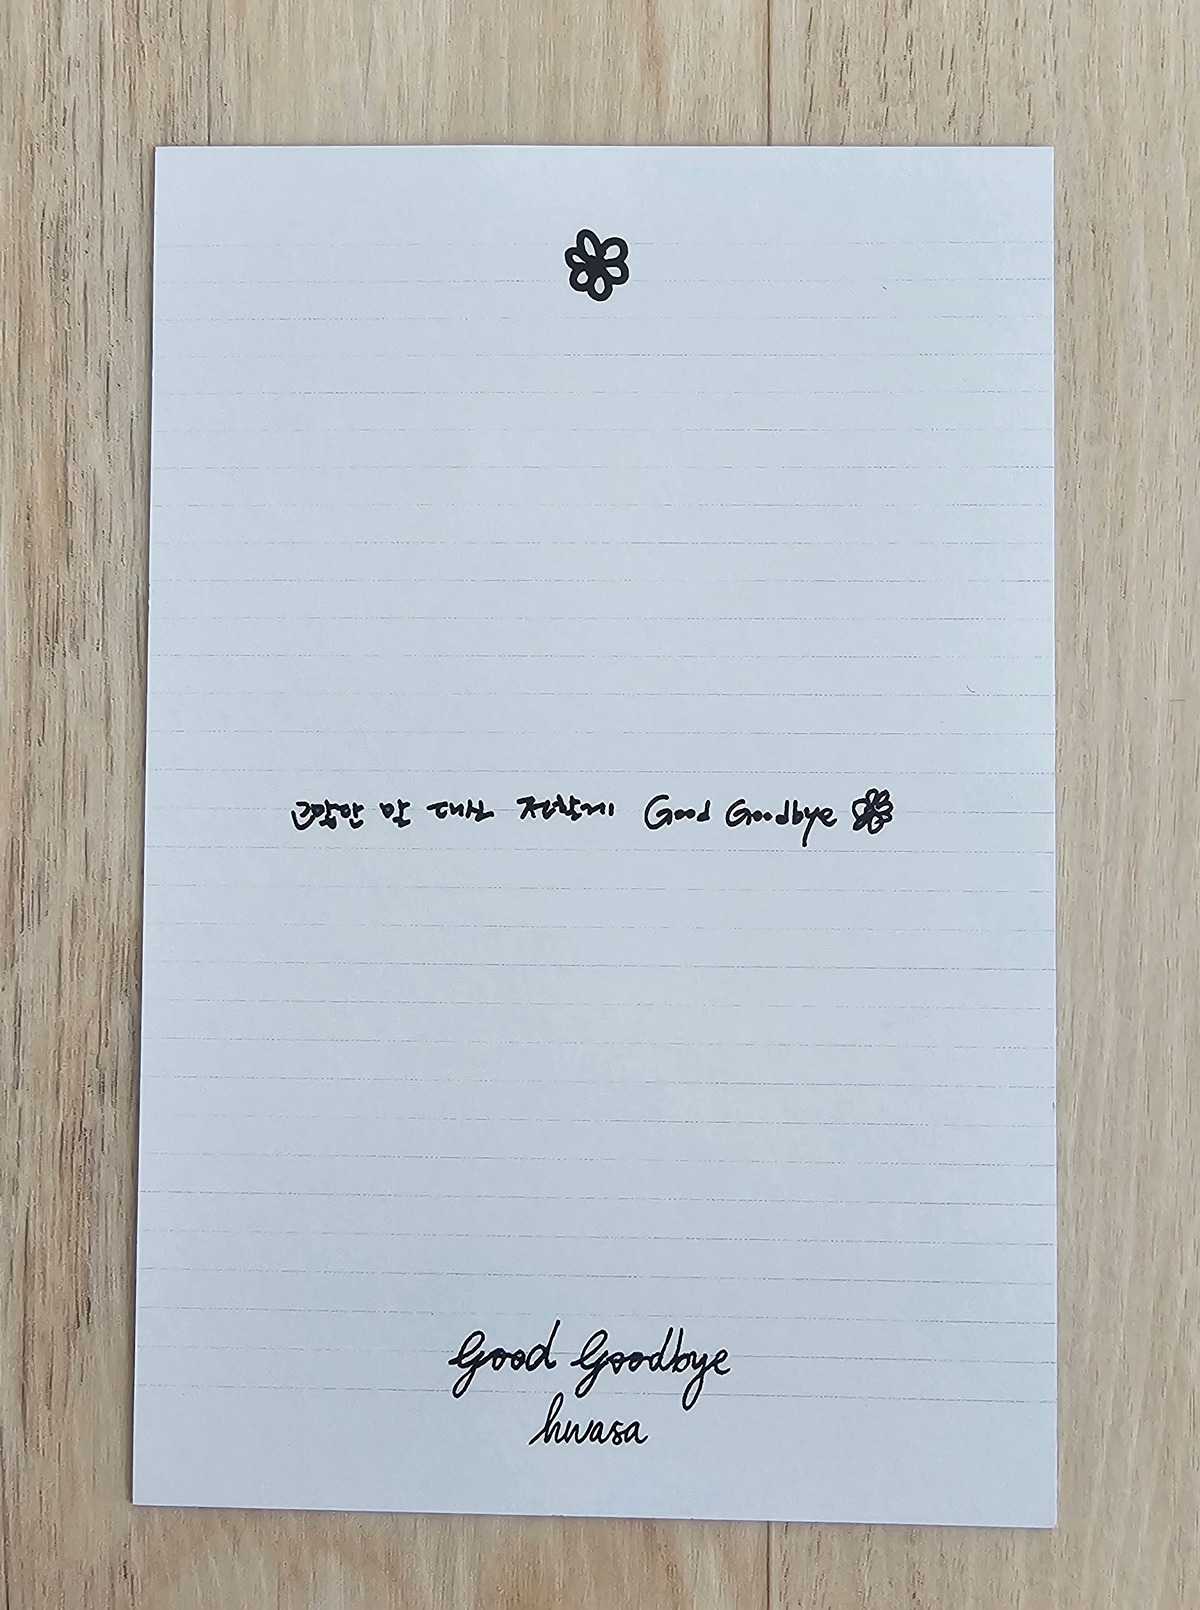 말 대신 전할게 Good Goodbye
Good Goodbye
hwasa